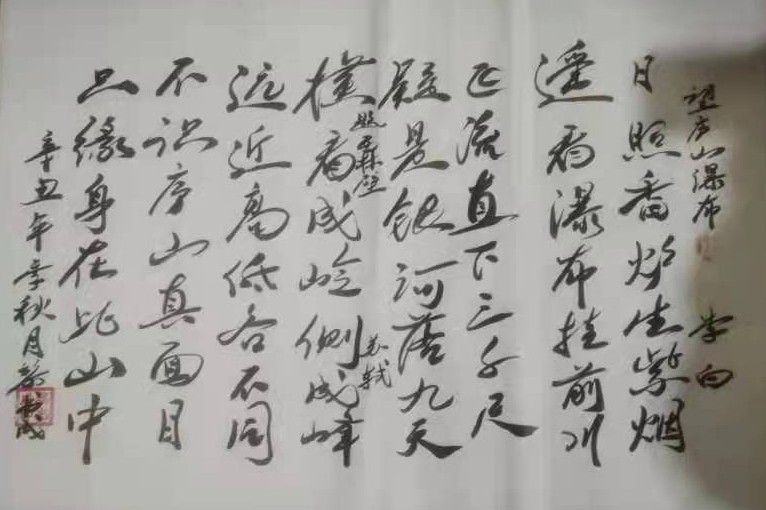 望庐山瀑布 李白
日照香炉生紫烟
遥看瀑布挂前川
飞流直下三千尺
疑是银河落九天
题森壁 苏轼
横看成岭侧成峰
远近高低各不同
不识庐山真面目
只缘身在此山中
辛丑年季秋月